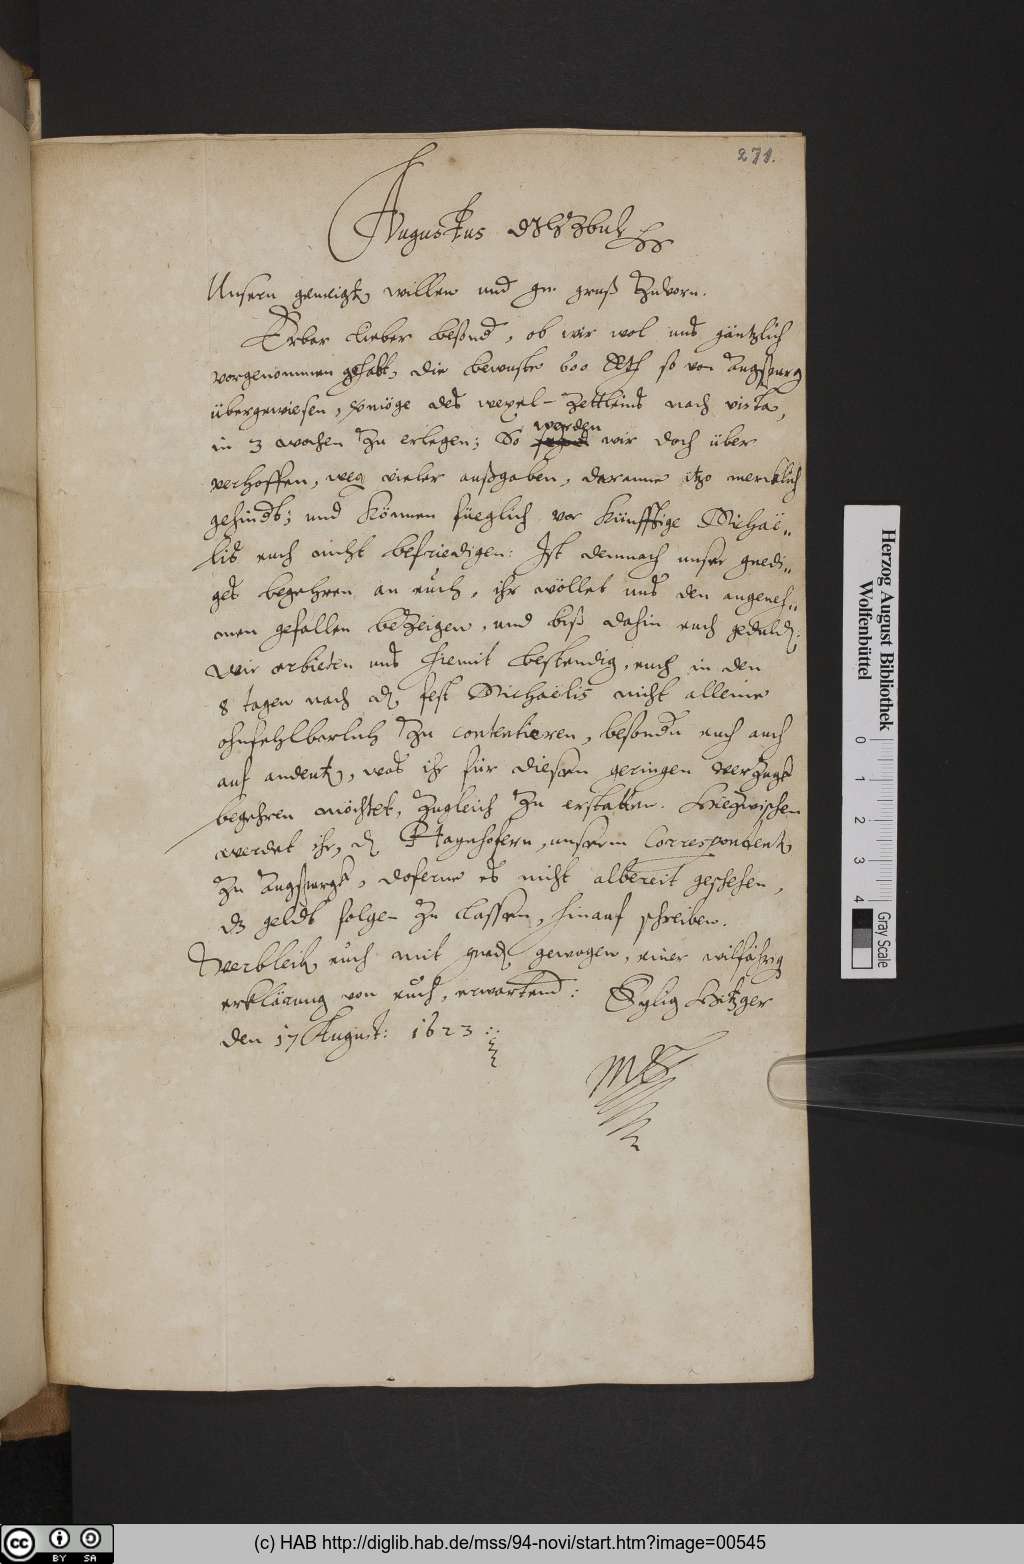 271.
Augustus
Unsern geneigten willen und gn. gruß zuvorn.
Erbar lieber besond, ob wir wol uns gäntzlich
vorgenommen gehabt, die bewuste 600 Rth so von Augspurg
übergewiesen, vermöge des wexel-zettleins nach vista,
in 3 wochen zu erlegen; So werden wir doch über
verhoffen, weg vieler außgaben, daranne itzo mercklich
gehindt; und können füeglich vor künfftige Michaë-
lis euch nicht befriedigen: Ist demnach unser gnedi-
ges begehren an euch, ihr wöllet uns den angeneh-
men gefallen bezeigen, und biß dahin euch geduld:
Wir erbieten uns hiemit bestendig, euch in den
8 tagen nach d fest Michaëlis nicht alleine
ohnfehlbarlich zu contentieren, besondn euch auch
auf andeut, was ihr für diesen geringen verzugk
begehren möchtet, zugleich zu erstatten. Hiezwischen
werdet ihr, d Haynhofern, unserm Correspondent
zu Augspurgk, doferne es nicht albereit geschehen,
dz geldt folgen zu lassen, hinauf schreiben.
Verbleib euch mit gned gewogen, einer wilfährig
erklärung von euch, erwartend: Hitzger
den 17 August: 1623
Herzog August Bibliothek
Wolfenbüttel
0 1 2 3 4
Gray Scale
cc BY SA
(c) HAB http://diglib.hab.de/mss/94-novi/start.htm?image=00545